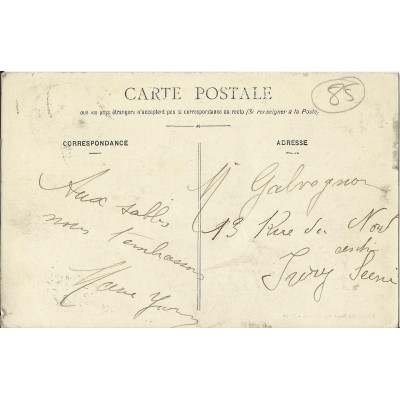 CARTE POSTALE
85
ous les pays étrangers n'acceptent pas la correspondance au recto (Se renseigner à la Poste)
CORRESPONDANCE
Aux sables
nous t'embrassons
ADRESSE
Mr Galvognon
13 Rue du Nord
Ivry Seine